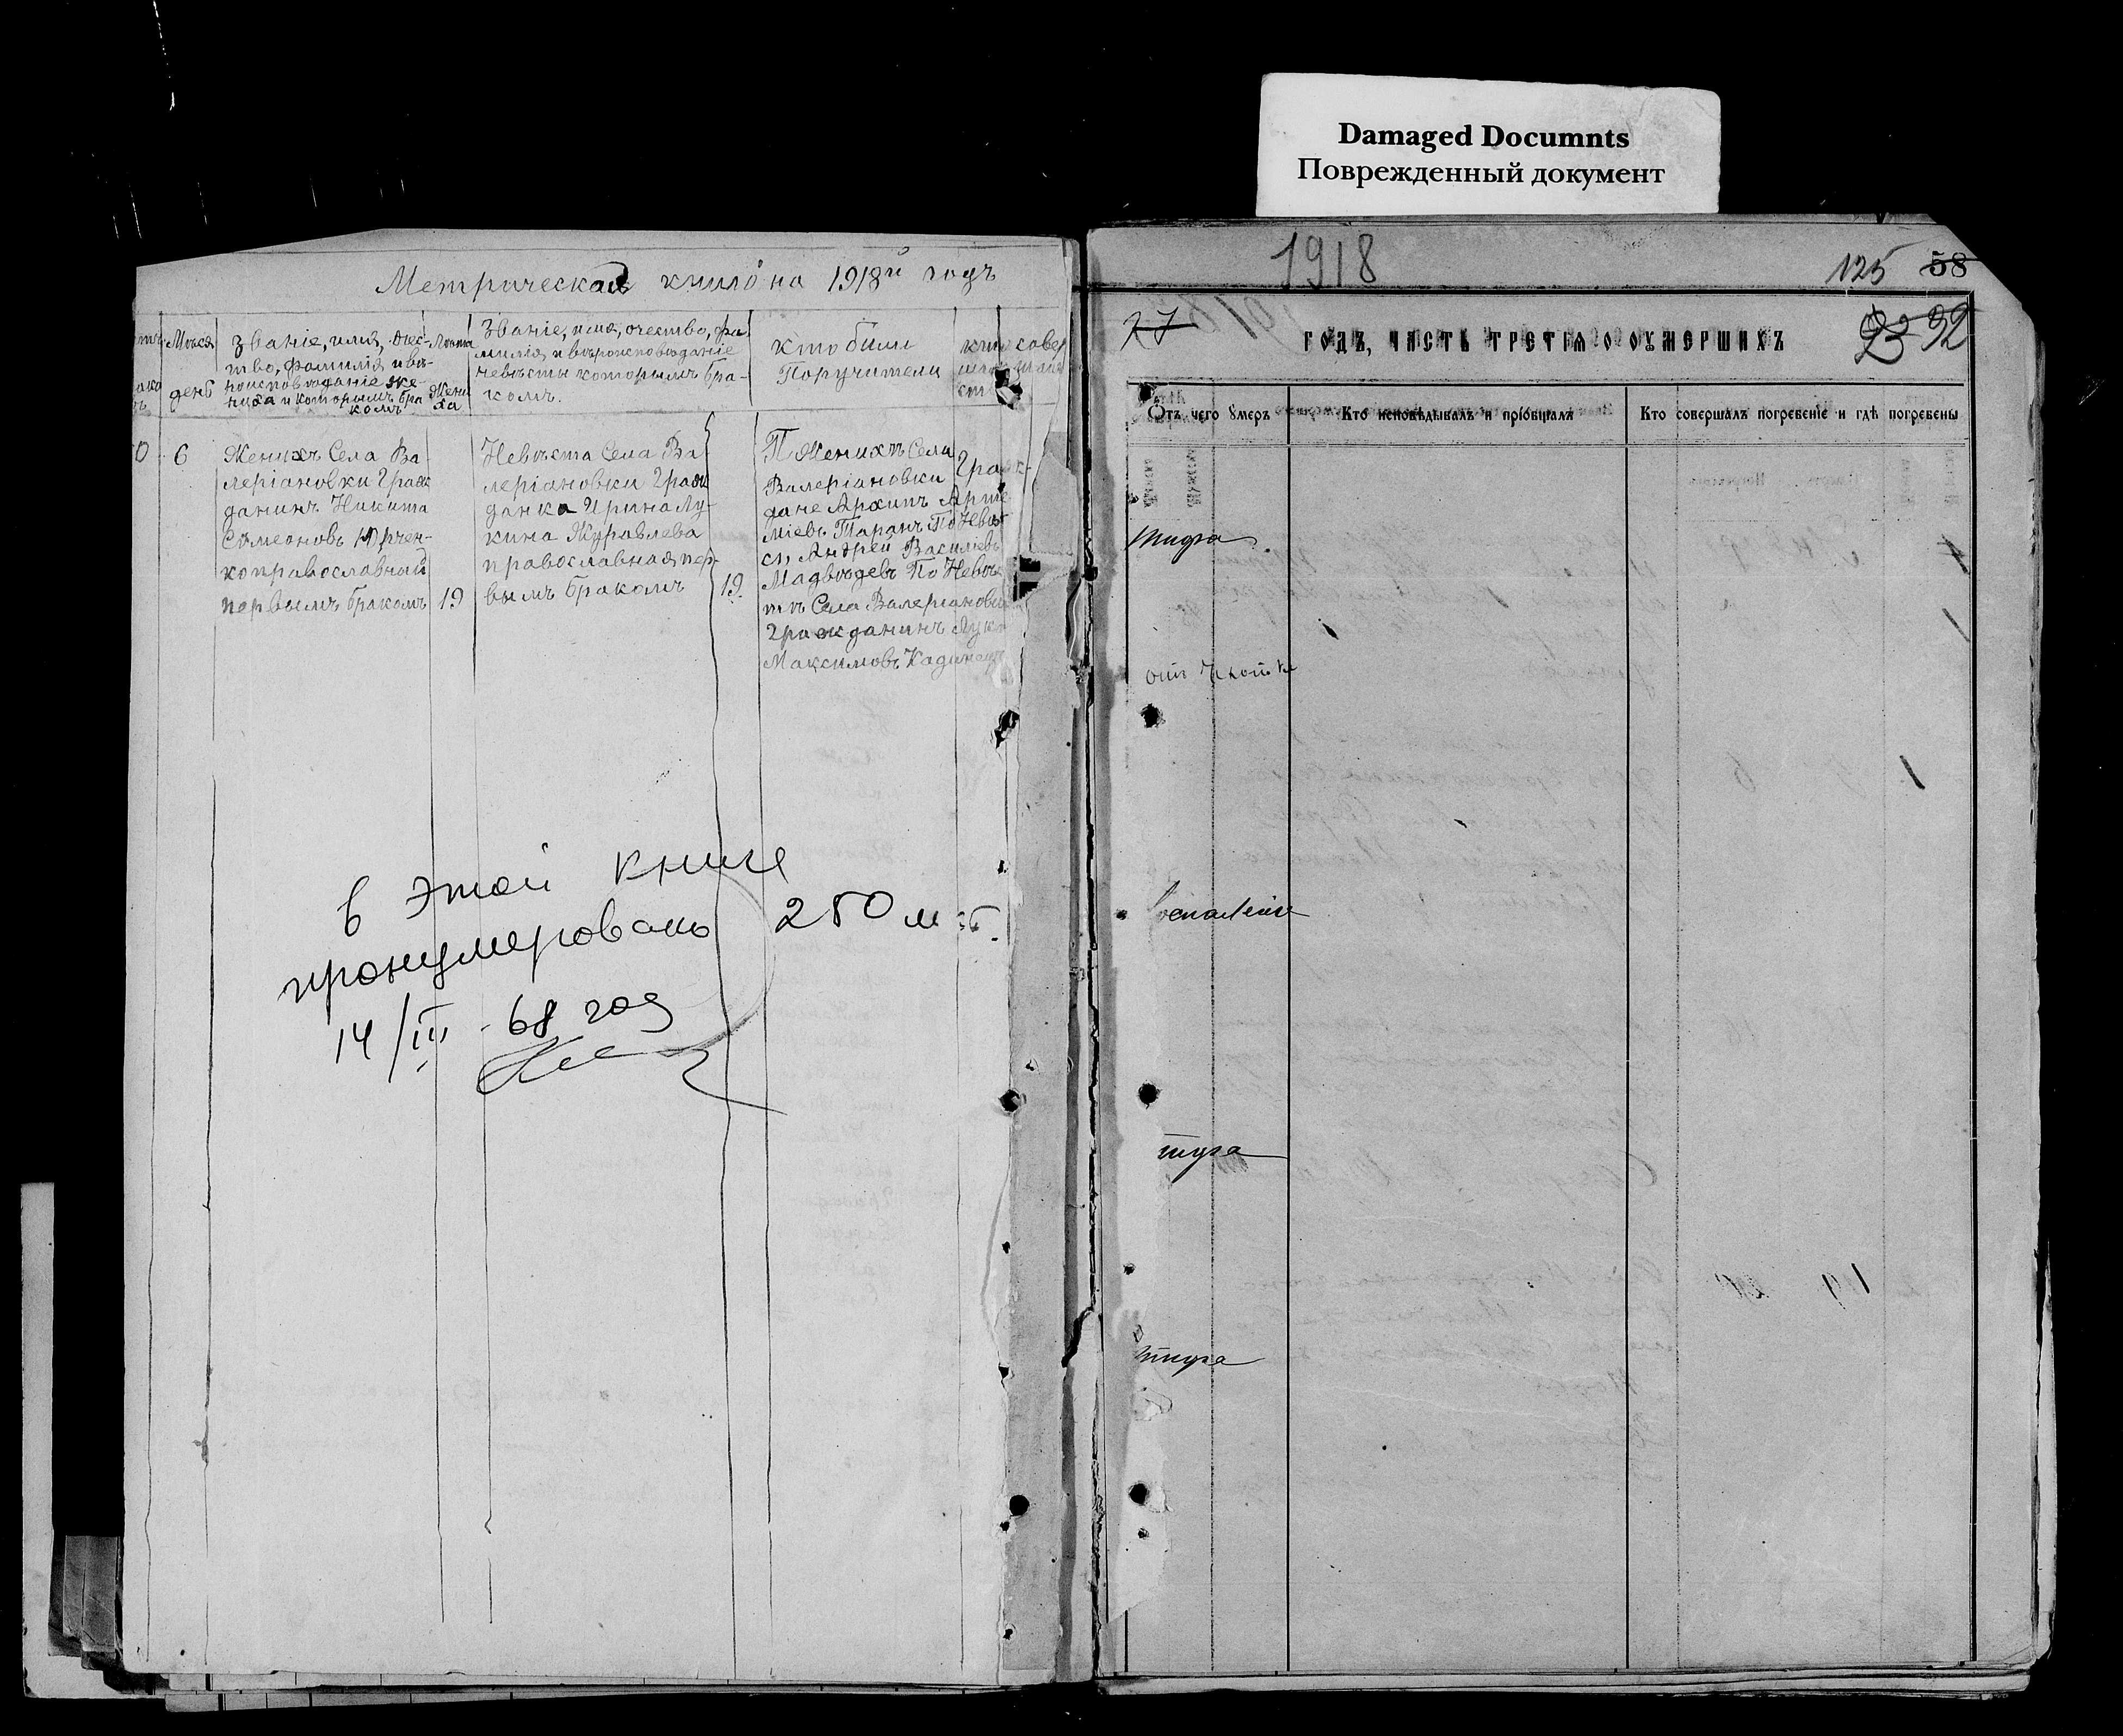 Damaged Documnts
Поврежденный документ
Метрическая книга на 1918й годъ
Мѣсяц
день
Званіе, имя, отчес-
тво, фамилія и вѣ-
роисповѣданіе же-
ниха и которымъ бра
комъ
Лѣта
Жени
ха
Званіе, имя, очество, фа
милія и вѣроисповѣданіе
невѣсты которымъ бра-
комъ.
Кто были
Поручители
Кто совер
6
Женихъ Села Ва-
леріановки Граж
данинъ Никита
Сѣмеоновъ
православный
первымъ бракомъ
19
Невѣста Села Ва
леріановки Граж
данка Ирина Лу-
кина Журавлева
православная пер-
вымъ бракомъ
19.
П Женихѣ Села
Валеріановки Граж-
дане Архипъ Арте
міевъ Таранъ По Невѣ
с, Андрей Василіевъ
Мадвѣдевъ По Невѣс
тѣ Села Валеріановки
Гражданинъ Лука
Максимовъ
в этой книге
пронумеровано 250
14/III - 68 год
1918
125 58
27
23 92
ГОДЪ, ЧАСТЬ ТРЕТІѦ О ОУМЕРШИХЪ
Отъ чего ѹмеръ
Кто исповѣдывалъ и пріобщалъ
Кто совершалъ погребеніе и гдѣ погребены
тифа
воспаленія
тифа
тифа